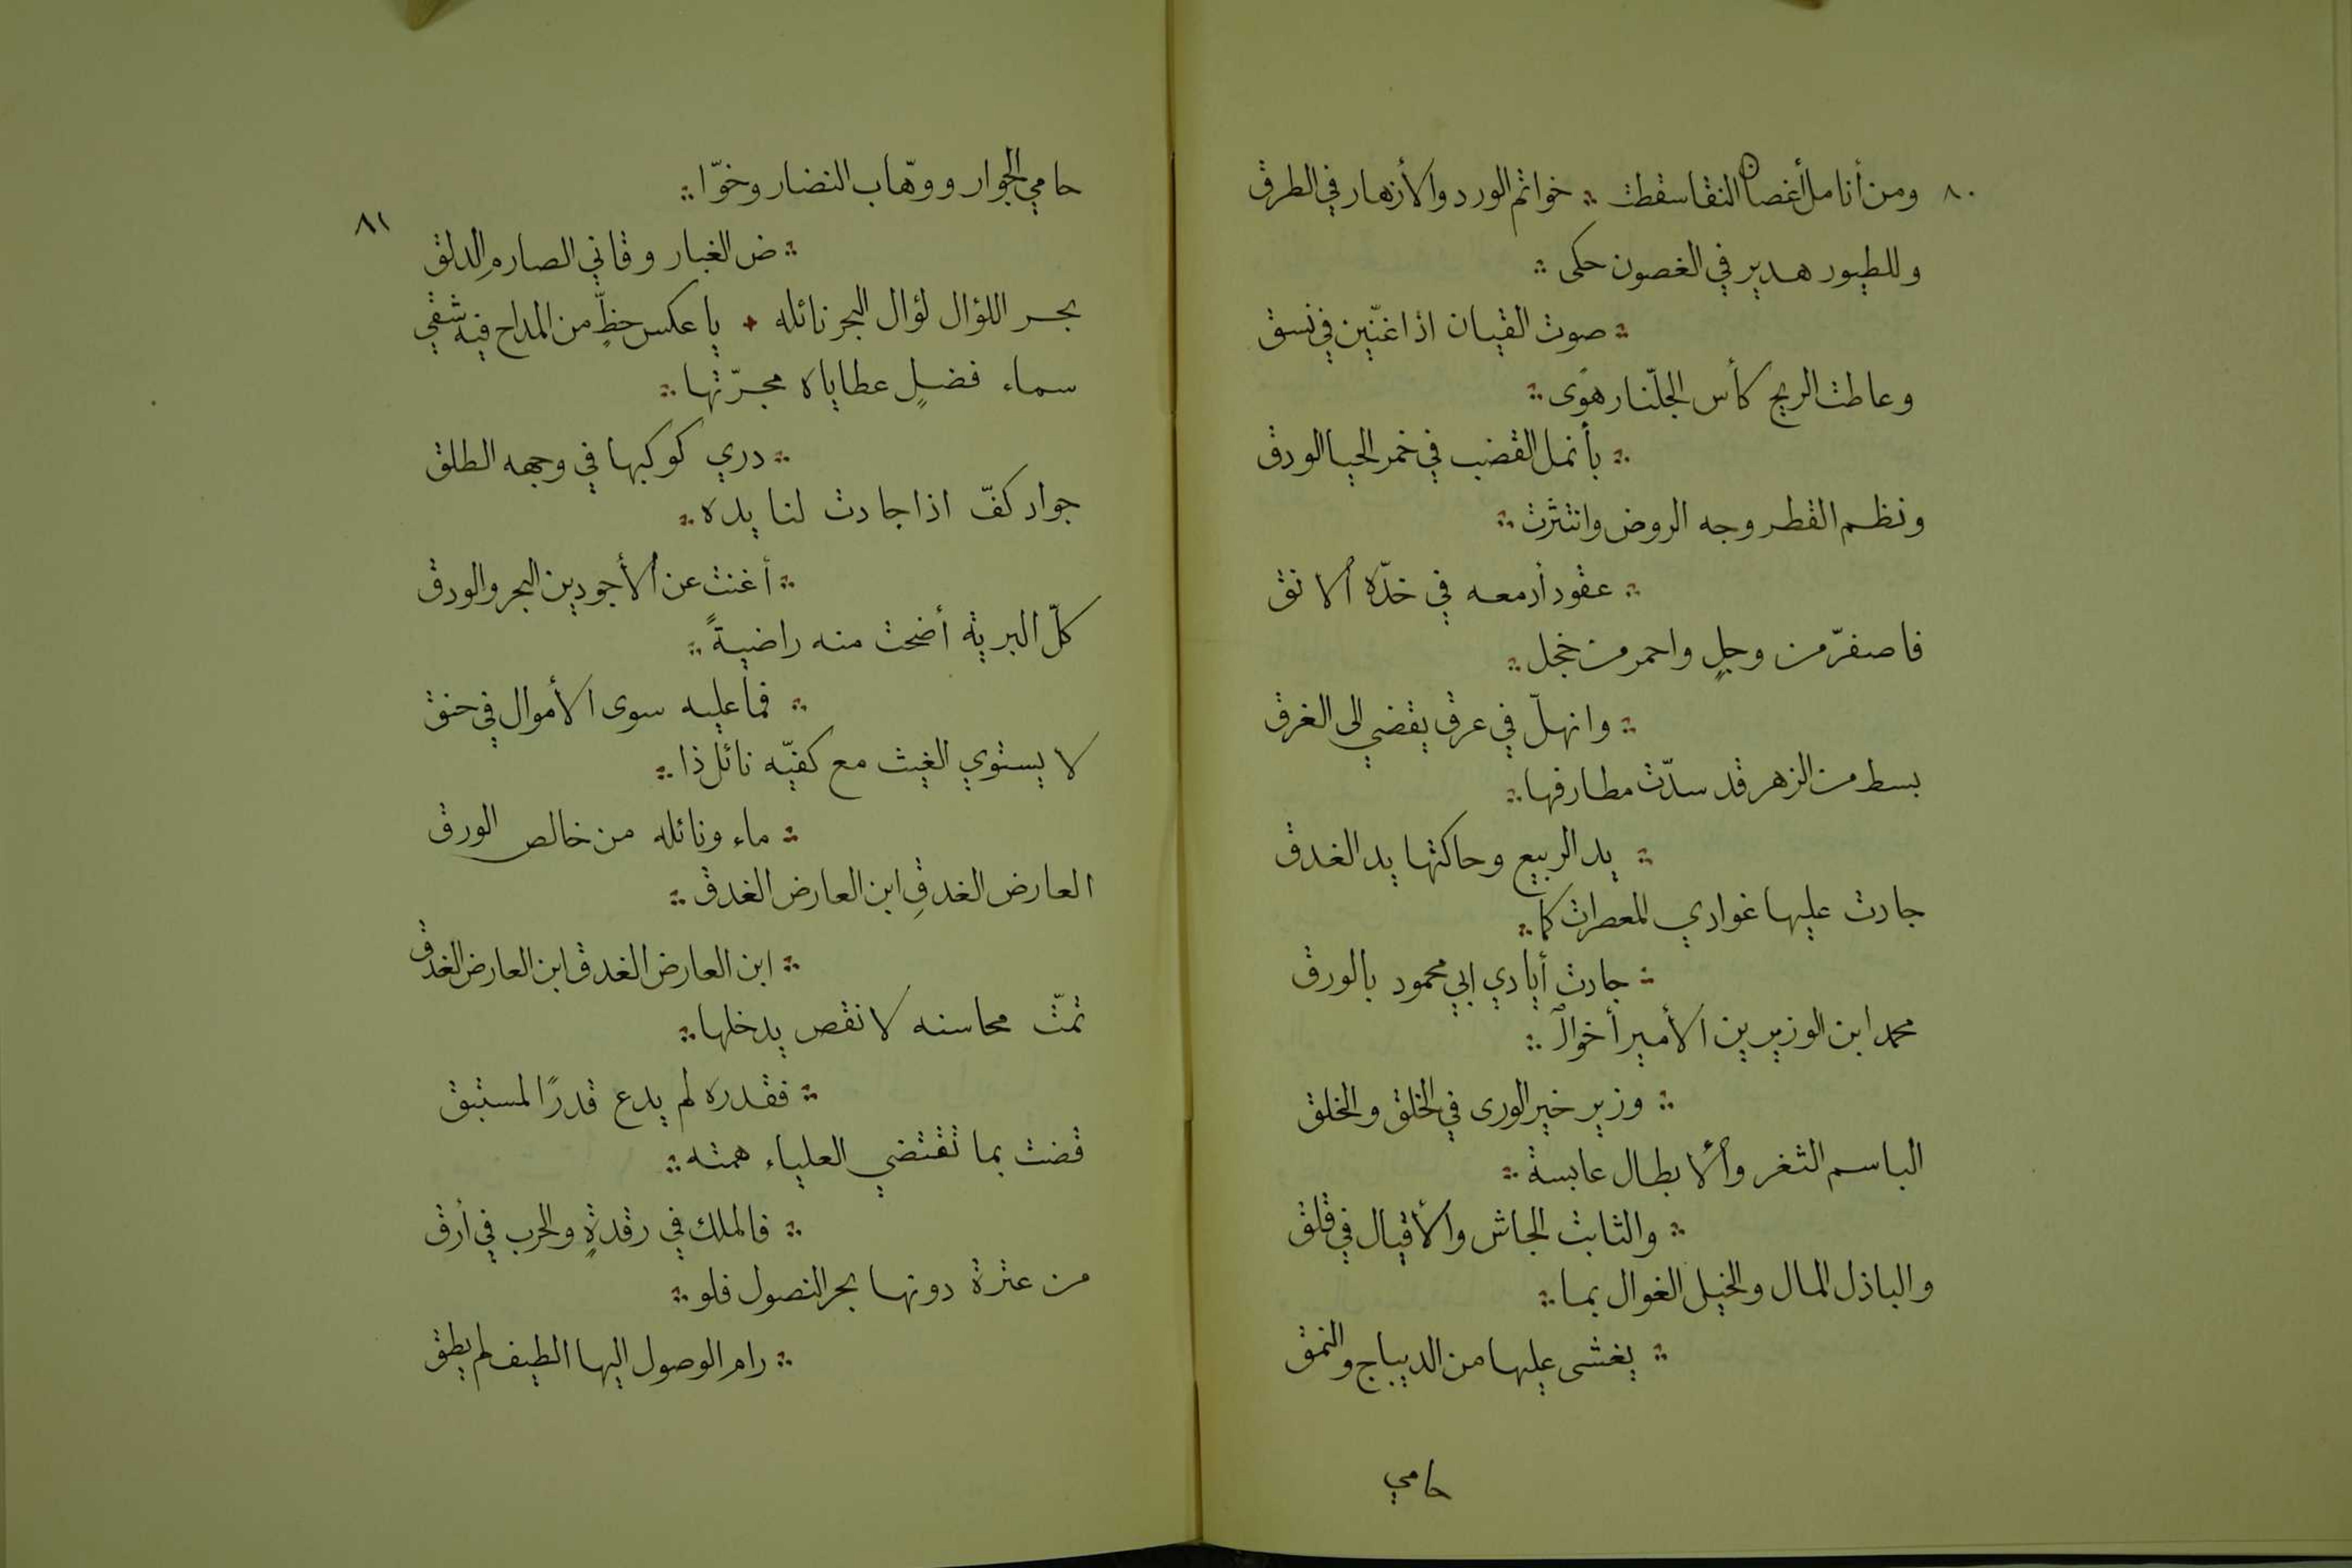 ٨٠
ومن أنامل أغصان النقا سقطت ؞ خواتم الورد والأزهار في الطرق
وللطيور هدير في الغصون حكى ؞
؞ صوت القيان اذا غنّين في نسق
وعاطت الريح كأس الجلّنار هوًى ؞
؞ بأنمل القضب في خمر الحيا الودق
ونظم القطر وجه الروض وانتثرت ؞
؞ عقود أدمعه في خدّه ألانق
فاصفرّ من وجلٍ واحمر من خجل ؞
؞ وانهلّ في عرق يقضي الى الغرق
بسط من الزهر قد سدّت مطارفها ؞
؞ يد الربيع وحاكتها يد الغدق
جادت عليها غوادي المعصرات كما ؞
؞ جادت أيادي ابي محمود بالورق
محمد ابن الوزيرين الأمير أخوالـ ؞
؞ وزير خير الورى في الخلق والخلق
الباسم الثغر وألابطال عابسة ؞
؞ والثابت الجاش والأقيال في قلق
والباذل المال والخيل الغوال بما ؞
؞ يغشى عليها من الديباج والنمق
حامي
٨١
حامي الجوار ووهّاب النضار وخوّا ؞
؞ ض الغبار وقاني الصارم الدلق
بحر اللؤال لؤال البحر نائله ؞ يا عكس حظٍّ من المداح فيه شقي
سماء فضلٍ عطاياه مجرّتها ؞
؞ دري كوكبها في وجهه الطلق
جواد كفّ اذا جادت لنا يده ؞
؞ أغنت عن ألأجودين البحر والودق
كلّ البرية أضحت منه راضيةً ؞
؞ فما عليه سوى الأموال في حنق
لا يستوي الغيث مع كفيّه نائل ذا ؞
؞ ماء ونائله من خالص الورق
العارض الغدقِ ابن العارض الغدق ؞
؞ ابن العارض الغدق ابن العارض الغدق
تمّت محاسنه لا نقص يدخلها ؞
؞ فقدره لم يدع قدرًا لمستبق
قضت بما تقتضي العلياء همته ؞
؞ فالملك في رقدةٍ والحرب في أرق
من عثرة دونها بحر النصول فلو ؞
؞ رام الوصول اليها الطيف لم يطق